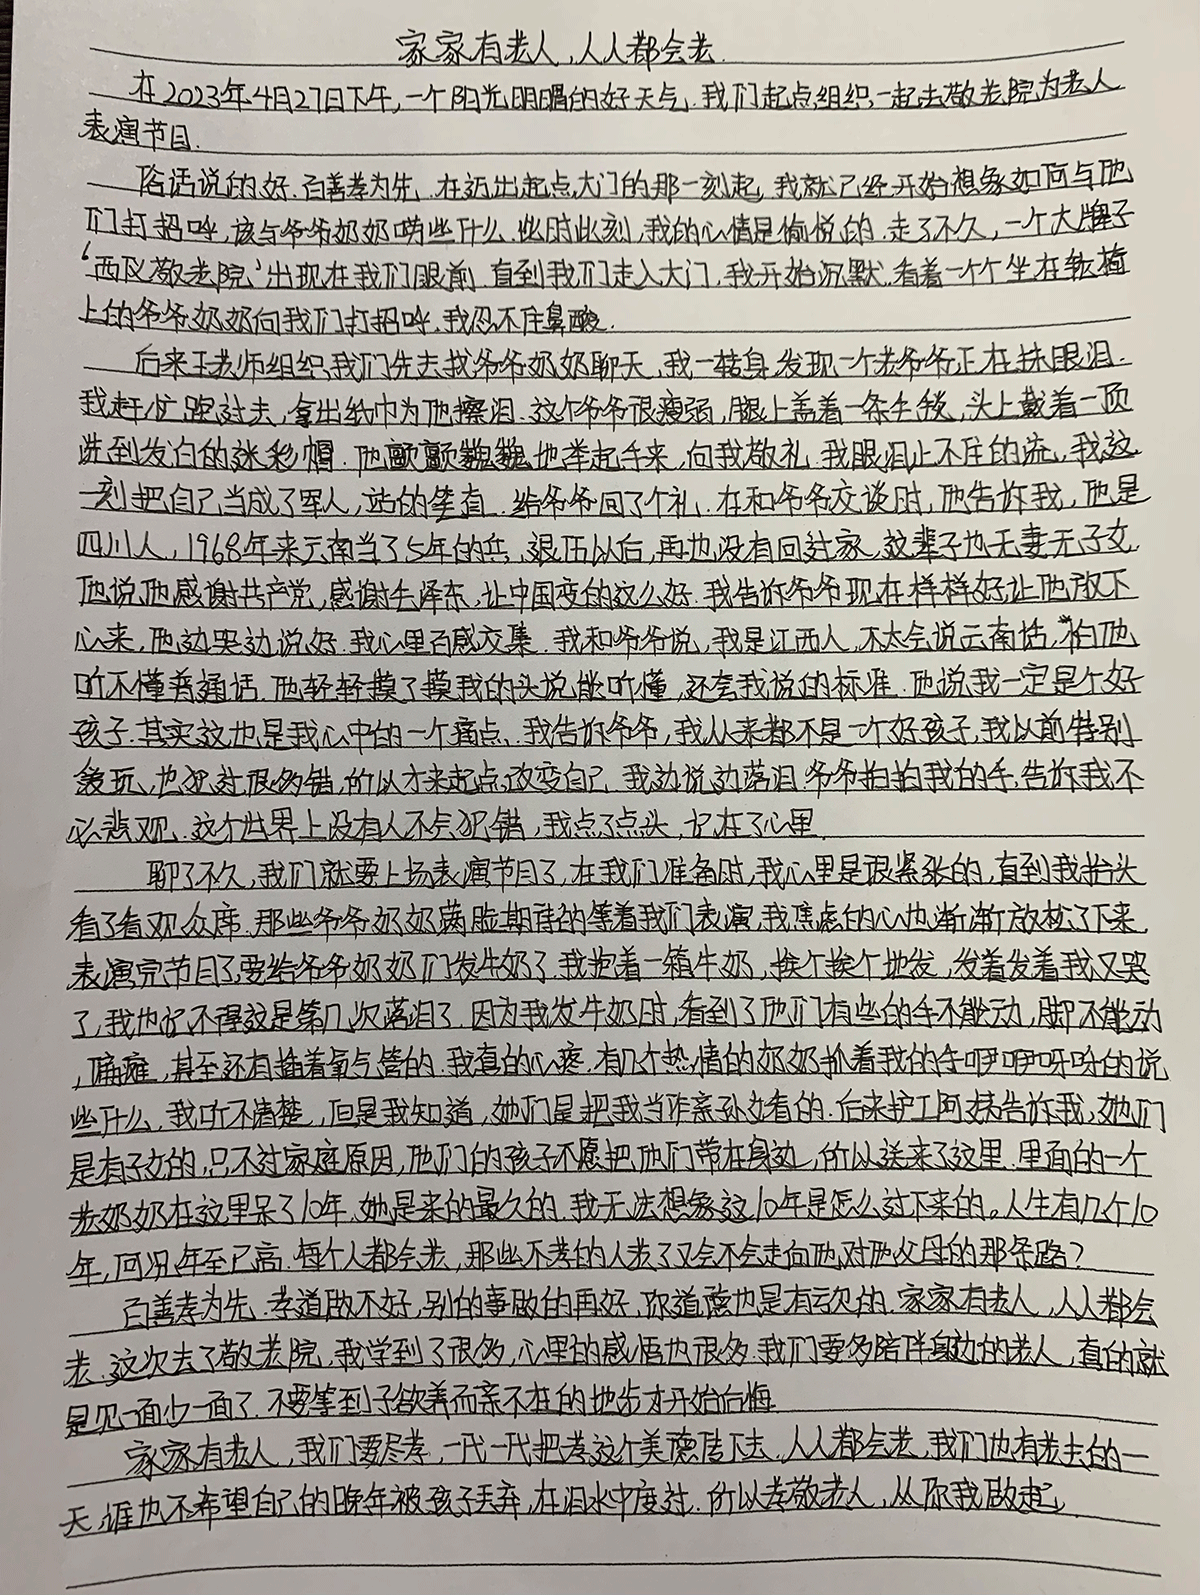 家家有老人，人人都会老.
在2023年4月27日下午，一个阳光明媚的好天气.我们起点组织一起去敬老院为老人
表演节目.
俗话说的好.百善孝为先.在迈出起点大门的那一刻起，我就已经开始想象如何与他
们打招呼，该与爷爷奶奶唠些什么.此时此刻，我的心情是愉悦的.走了不久，一个大牌子
‘西仪敬老院’出现在我们眼前.直到我们走入大门，我开始沉默.看着一个个坐在轮椅
上的爷爷奶奶向我们打招呼，我忍不住鼻酸.
后来王老师组织我们先去找爷爷奶奶聊天，我一转身，发现一个老爷爷正在抹眼泪.
我赶忙跑过去，拿出纸巾为他擦泪.这个爷爷很瘦弱，腿上盖着一条毛毯，头上戴着一顶
洗到发白的迷彩帽.他颤颤巍巍地举起手来，向我敬礼.我眼泪止不住的流，我这
一刻把自己当成了军人，站的笔直.给爷爷回了个礼.在和爷爷交谈时，他告诉我，他是
四川人，1968年来云南当了5年的兵，退伍以后，再也没有回过家，这辈子也无妻无子女.
他说他感谢共产党，感谢毛泽东，让中国变的这么好.我告诉爷爷现在样样好，让他放下
心来，他边哭边说好.我心里百感交集.我和爷爷说，我是江西人，不太会说云南话，怕他
听不懂普通话.他轻轻摸了摸我的头说能听懂，还夸我说的标准.他说我一定是个好
孩子.其实这也是我心中的一个痛点.我告诉爷爷，我从来都不是一个好孩子，我以前特别
贪玩，也犯过很多错，所以才来起点改变自己.我边说边落泪.爷爷拍拍我的手，告诉我不
必悲观.这个世界上没有人不会犯错，我点了点头，记在了心里.
聊了不久，我们就要上场表演节目了，在我们准备时，我心里是很紧张的，直到我抬头
看了看观众席.那些爷爷奶奶满脸期待的等着我们表演，我焦虑的心也渐渐放松了下来.
表演完节目了，要给爷爷奶奶们发牛奶了.我抱着一箱牛奶，挨个挨个地发，发着发着我又哭
了，我也记不得这是第几次落泪了.因为我发牛奶时，看到了他们有些的手不能动，脚不能动
，偏瘫，甚至还有插着氧气管的.我真的心疼.有几个热情的奶奶抓着我的手咿咿呀呀的说
些什么，我听不清楚，但是我知道，她们是把我当作亲孙女看的.后来护工阿姨告诉我，她们
是有子女的，只不过家庭原因，他们的孩子不愿把他们带在身边，所以送来了这里.里面的一个
老奶奶在这里呆了10年.她是来的最久的.我无法想象这10年是怎么过下来的。人生有几个10
年，何况年至已高.每个人都会老，那些不孝的人老了又会不会走向他对他父母的那条路？
百善孝为先.孝道做不好，别的事做的再好，你道德也是有云欠的.家家有老人，人人都会
老.这次去了敬老院，我学到了很多，心里的感悟也很多.我们要多陪伴身边的老人，真的就
是见一面少一面了.不要等到子欲养而亲不在的地步才开始后悔.
家家有老人，我们要尽孝，一代一代把孝这个美德传下去.人人都会老，我们也有老去的一
天，谁也不希望自己的晚年被孩子丢弃，在泪水中度过.所以孝敬老人，从你我做起.